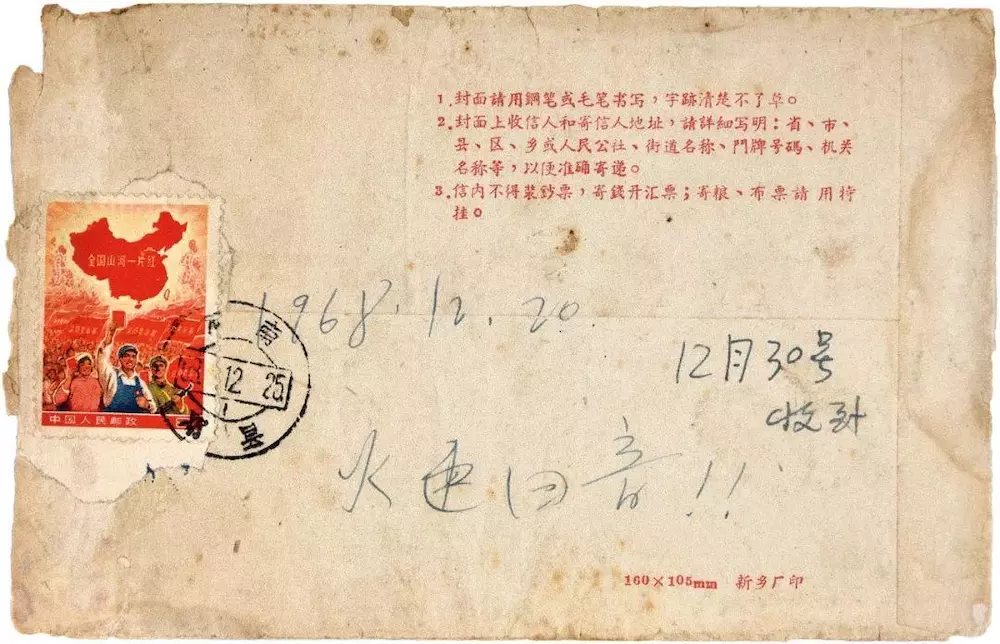 1.封面請用鋼笔或毛笔书写,字跡清楚不了草。
2.封面上收信人和寄信人地址,請詳細写明:省、市、
县、区、乡或人民公社、街道名称、門牌号碼、机关
名称等,以便准确寄递。
3.信内不得装鈔票,寄錢开汇票;寄粮、布票請用特
挂。
全国山河一片红
中国人民邮政
12 25
1968.12.20
12月30号
收到
火速回音!!
160×105mm 新乡厂印